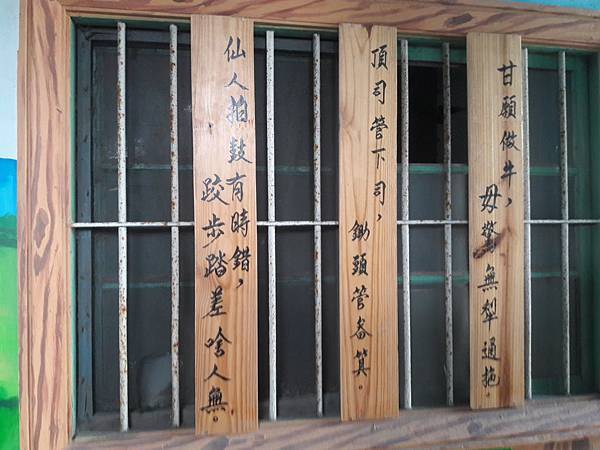 甘願做牛，
毋驚無犁通拖。
頂司管下司，
鋤頭管畚箕。
仙人拍鼓有時錯，
跤步踏差啥人無。